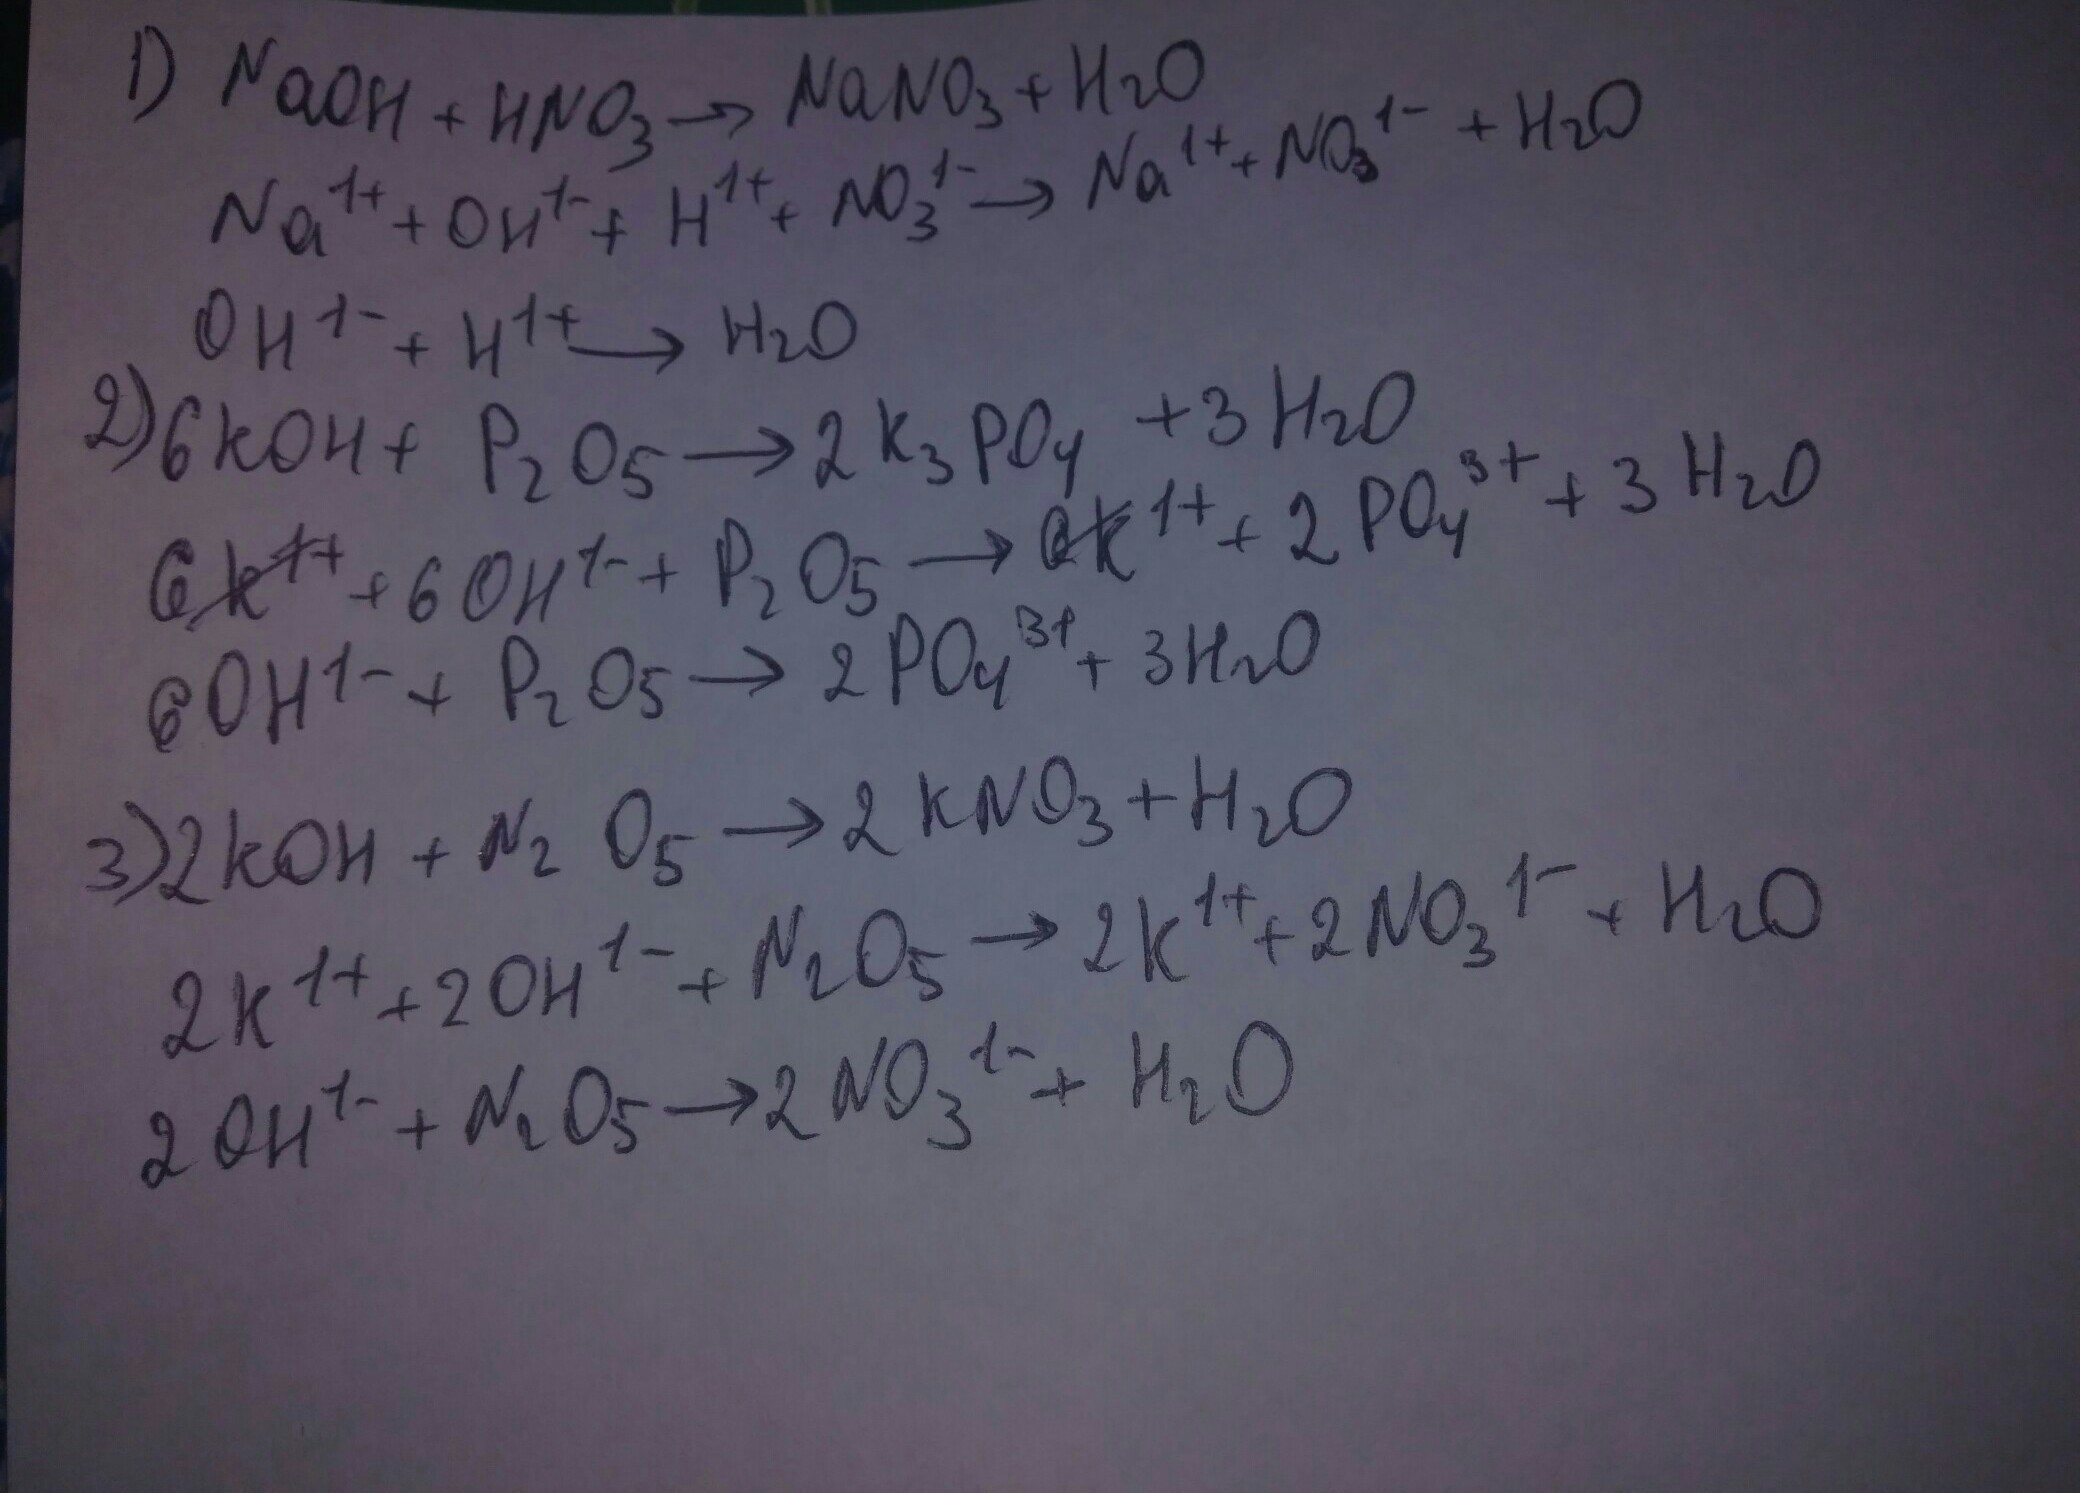 1) NaOH + HNO₃ → NaNO₃ + H₂O
Na¹⁺ + OH¹⁻ + H¹⁺ + NO₃¹⁻ → Na¹⁺ + NO₃¹⁻ + H₂O
OH¹⁻ + H¹⁺ → H₂O
2) 6KOH + P₂O₅ → 2K₃PO₄ + 3H₂O
6K¹⁺ + 6OH¹⁻ + P₂O₅ → 6K¹⁺ + 2PO₄³⁺ + 3H₂O
6OH¹⁻ + P₂O₅ → 2PO₄³⁺ + 3H₂O
3) 2KOH + N₂O₅ → 2KNO₃ + H₂O
2K¹⁺ + 2OH¹⁻ + N₂O₅ → 2K¹⁺ + 2NO₃¹⁻ + H₂O
2OH¹⁻ + N₂O₅ → 2NO₃¹⁻ + H₂O